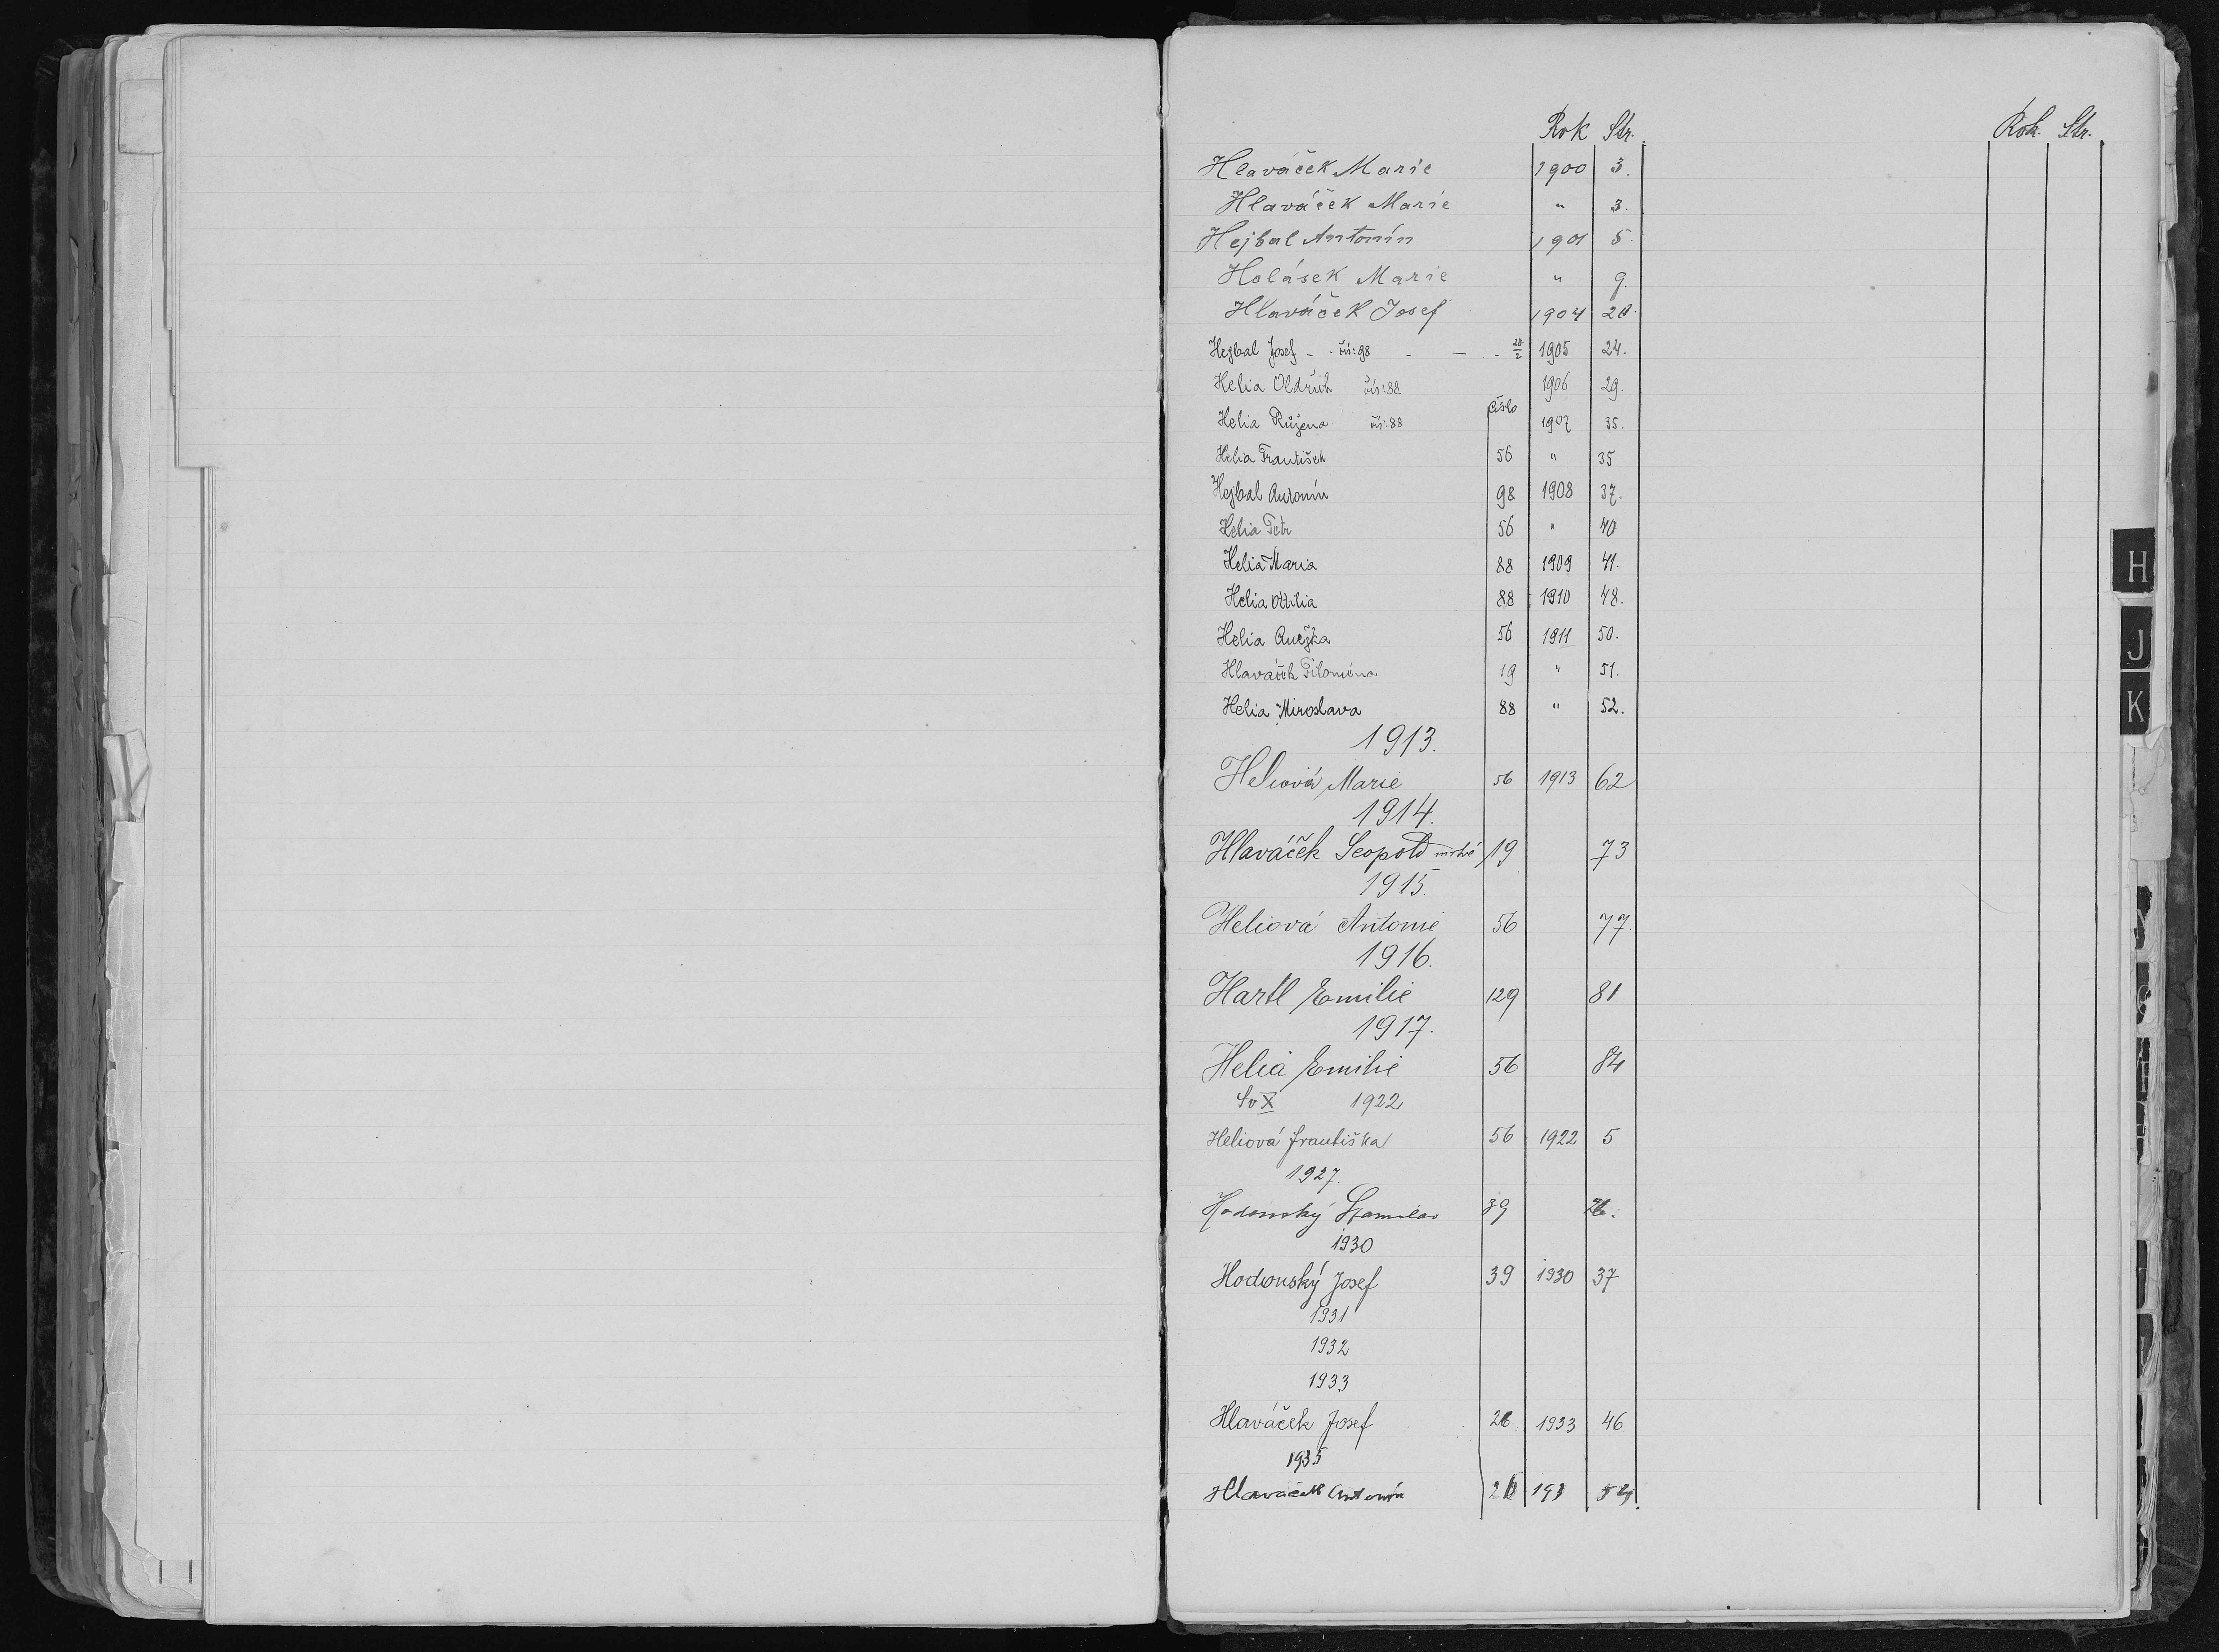 Rok Str. Rok. Str.
Hlaváček Marie 1900 3.
Hlaváček Marie " 3.
Hejbal Antonín 1901 5.
Holásek Marie " 9.
Hlaváček Josef 1904 20.
Hejbal Josef - - čís: 98 - - - 20/2 1905 24.
Helia Oldřich čís: 88 1906 29.
číslo
Helia Růžena čís: 88 1907 35.
Helia František 56 " 35
Hejbal Antonín 98 1908 37.
Helia Petr 56 " 40
Helia Maria 88 1909 41.
Helia Ottilia 88 1910 48.
Helia Anežka 56 1911 50.
Hlaváček Filoména 19 " 51.
Helia Miroslava 88 " 52.
1913.
Heliová Marie 56 1913 62
1914.
Hlaváček Leopold mrtvě 19 73
1915.
Heliová Antonie 56 77.
1916.
Hartl Emilie 129 81
1917.
Helia Emilie 56 84
Sv X 1922
Heliová Františka 56 1922 5
1927.
Hodonský Stanislav 39 26.
1930
Hodonský Josef 39 1930 37
1931
1932
1933
Hlaváček Josef 26 1933 46
1935
Hlaváček Antonín 26 193 54.
H
J
K